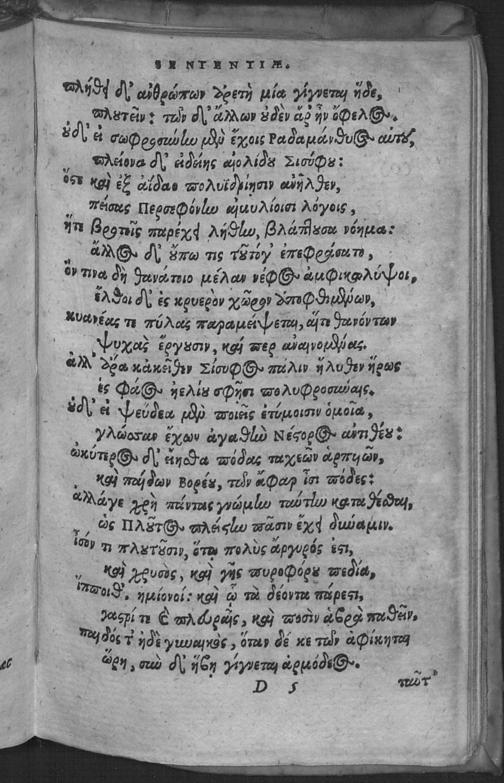 SENTENTIÆ.
πλήθει δ' ἀνθρώπων ἀρετὴ μία γίγνεται ἥδε,
πλουτεῖν: τῶν δ' ἄλλων οὐδὲν ἄρ' ἦν ὄφελος.
οὐδ' εἰ σωφροσύνην μὲν ἔχοις Ῥαδαμάνθυος αὐτοῦ,
πλείονα δ' εἰδείης αἰολίδου Σισύφου:
ὅστε καὶ ἐξ ἀΐδαο πολυϊδρίῃσιν ἀνῆλθεν,
πείσας Περσεφόνην αἱμυλίοισι λόγοις,
ἥτε βροτοῖς παρέχει λήθην, βλάπτουσα νόημα:
ἄλλος δ' οὔπω τις τοῦτό γ' ἐπεφράσατο,
ὅντινα δὴ θανάτοιο μέλαν νέφος ἀμφικαλύψοι,
ἔλθοι δ' ἐς κρυερὸν χῶρον ὑποφθιμένων,
κυανέας τε πύλας παραμείψεται, αἵτε θανόντων
ψυχὰς ἔργουσιν, καί περ ἀναινομένας.
ἀλλ' ἄρα κἀκεῖθεν Σίσυφος πάλιν ἤλυθεν ἥρως
ἐς φάος ἠελίου σφῇσι πολυφροσύναις.
οὐδ' εἰ ψεύδεα μὲν ποιεῖς ἐτύμοισιν ὁμοῖα,
γλῶσσαν ἔχων ἀγαθὴν Νέστορος ἀντιθέου:
ὠκύτερος δ' εἴησθα πόδας ταχεῶν ἁρπυιῶν,
καὶ παίδων Βορέου, τῶν ἄφαρ εἰσὶ πόδες:
ἀλλάγε χρὴ πάντας γνώμην ταύτην καταθέσθαι,
ὡς Πλοῦτος πλείστην πᾶσιν ἔχει δύναμιν.
ἶσόν τι πλουτοῦσιν, ὅτῳ πολὺς ἄργυρός ἐστι,
καὶ χρυσὸς, καὶ γῆς πυροφόρου πεδία,
ἵπποιθ' ἡμίονοι: καὶ ᾧ τὰ δέοντα πάρεστι,
γαστρί τε καὶ πλευραῖς, καὶ ποσὶν ἁβρὰ παθεῖν.
παιδός τ' ἠδὲ γυναικὸς, ὅταν δέ κε τῶν ἀφίκηται
ὥρη, σὺν δ' ἥβη γίγνεται ἁρμόδιος.
D 5 ταῦτ'